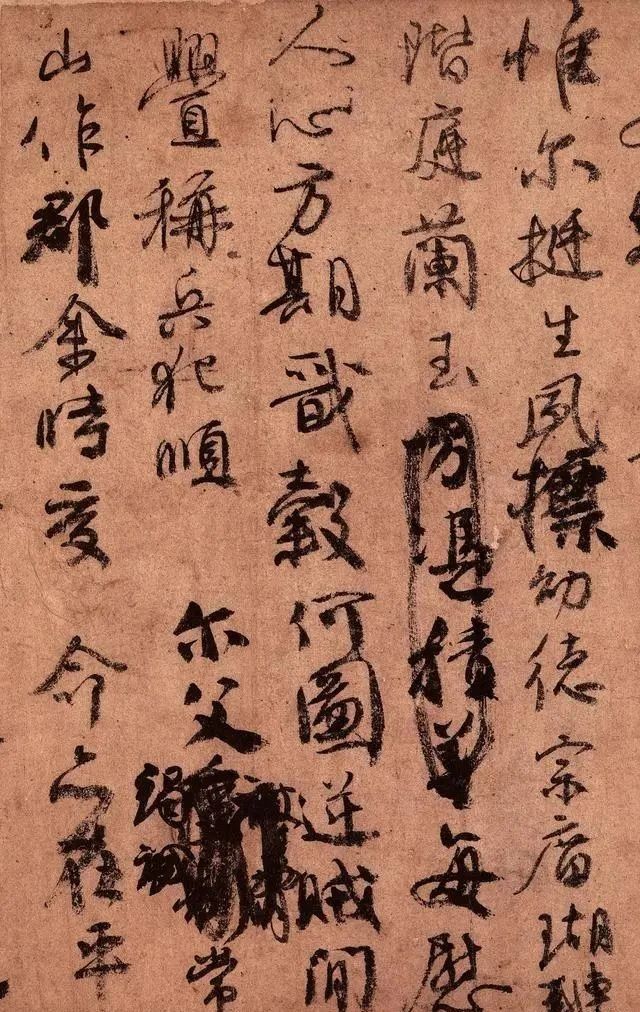 惟尔挺生夙標幼德宗廟瑚璉
階庭蘭玉方憑積善每慰
人心方期戩穀何圖逆賊間
釁稱兵犯順尔父竭誠常
山作郡余時受命亦在平